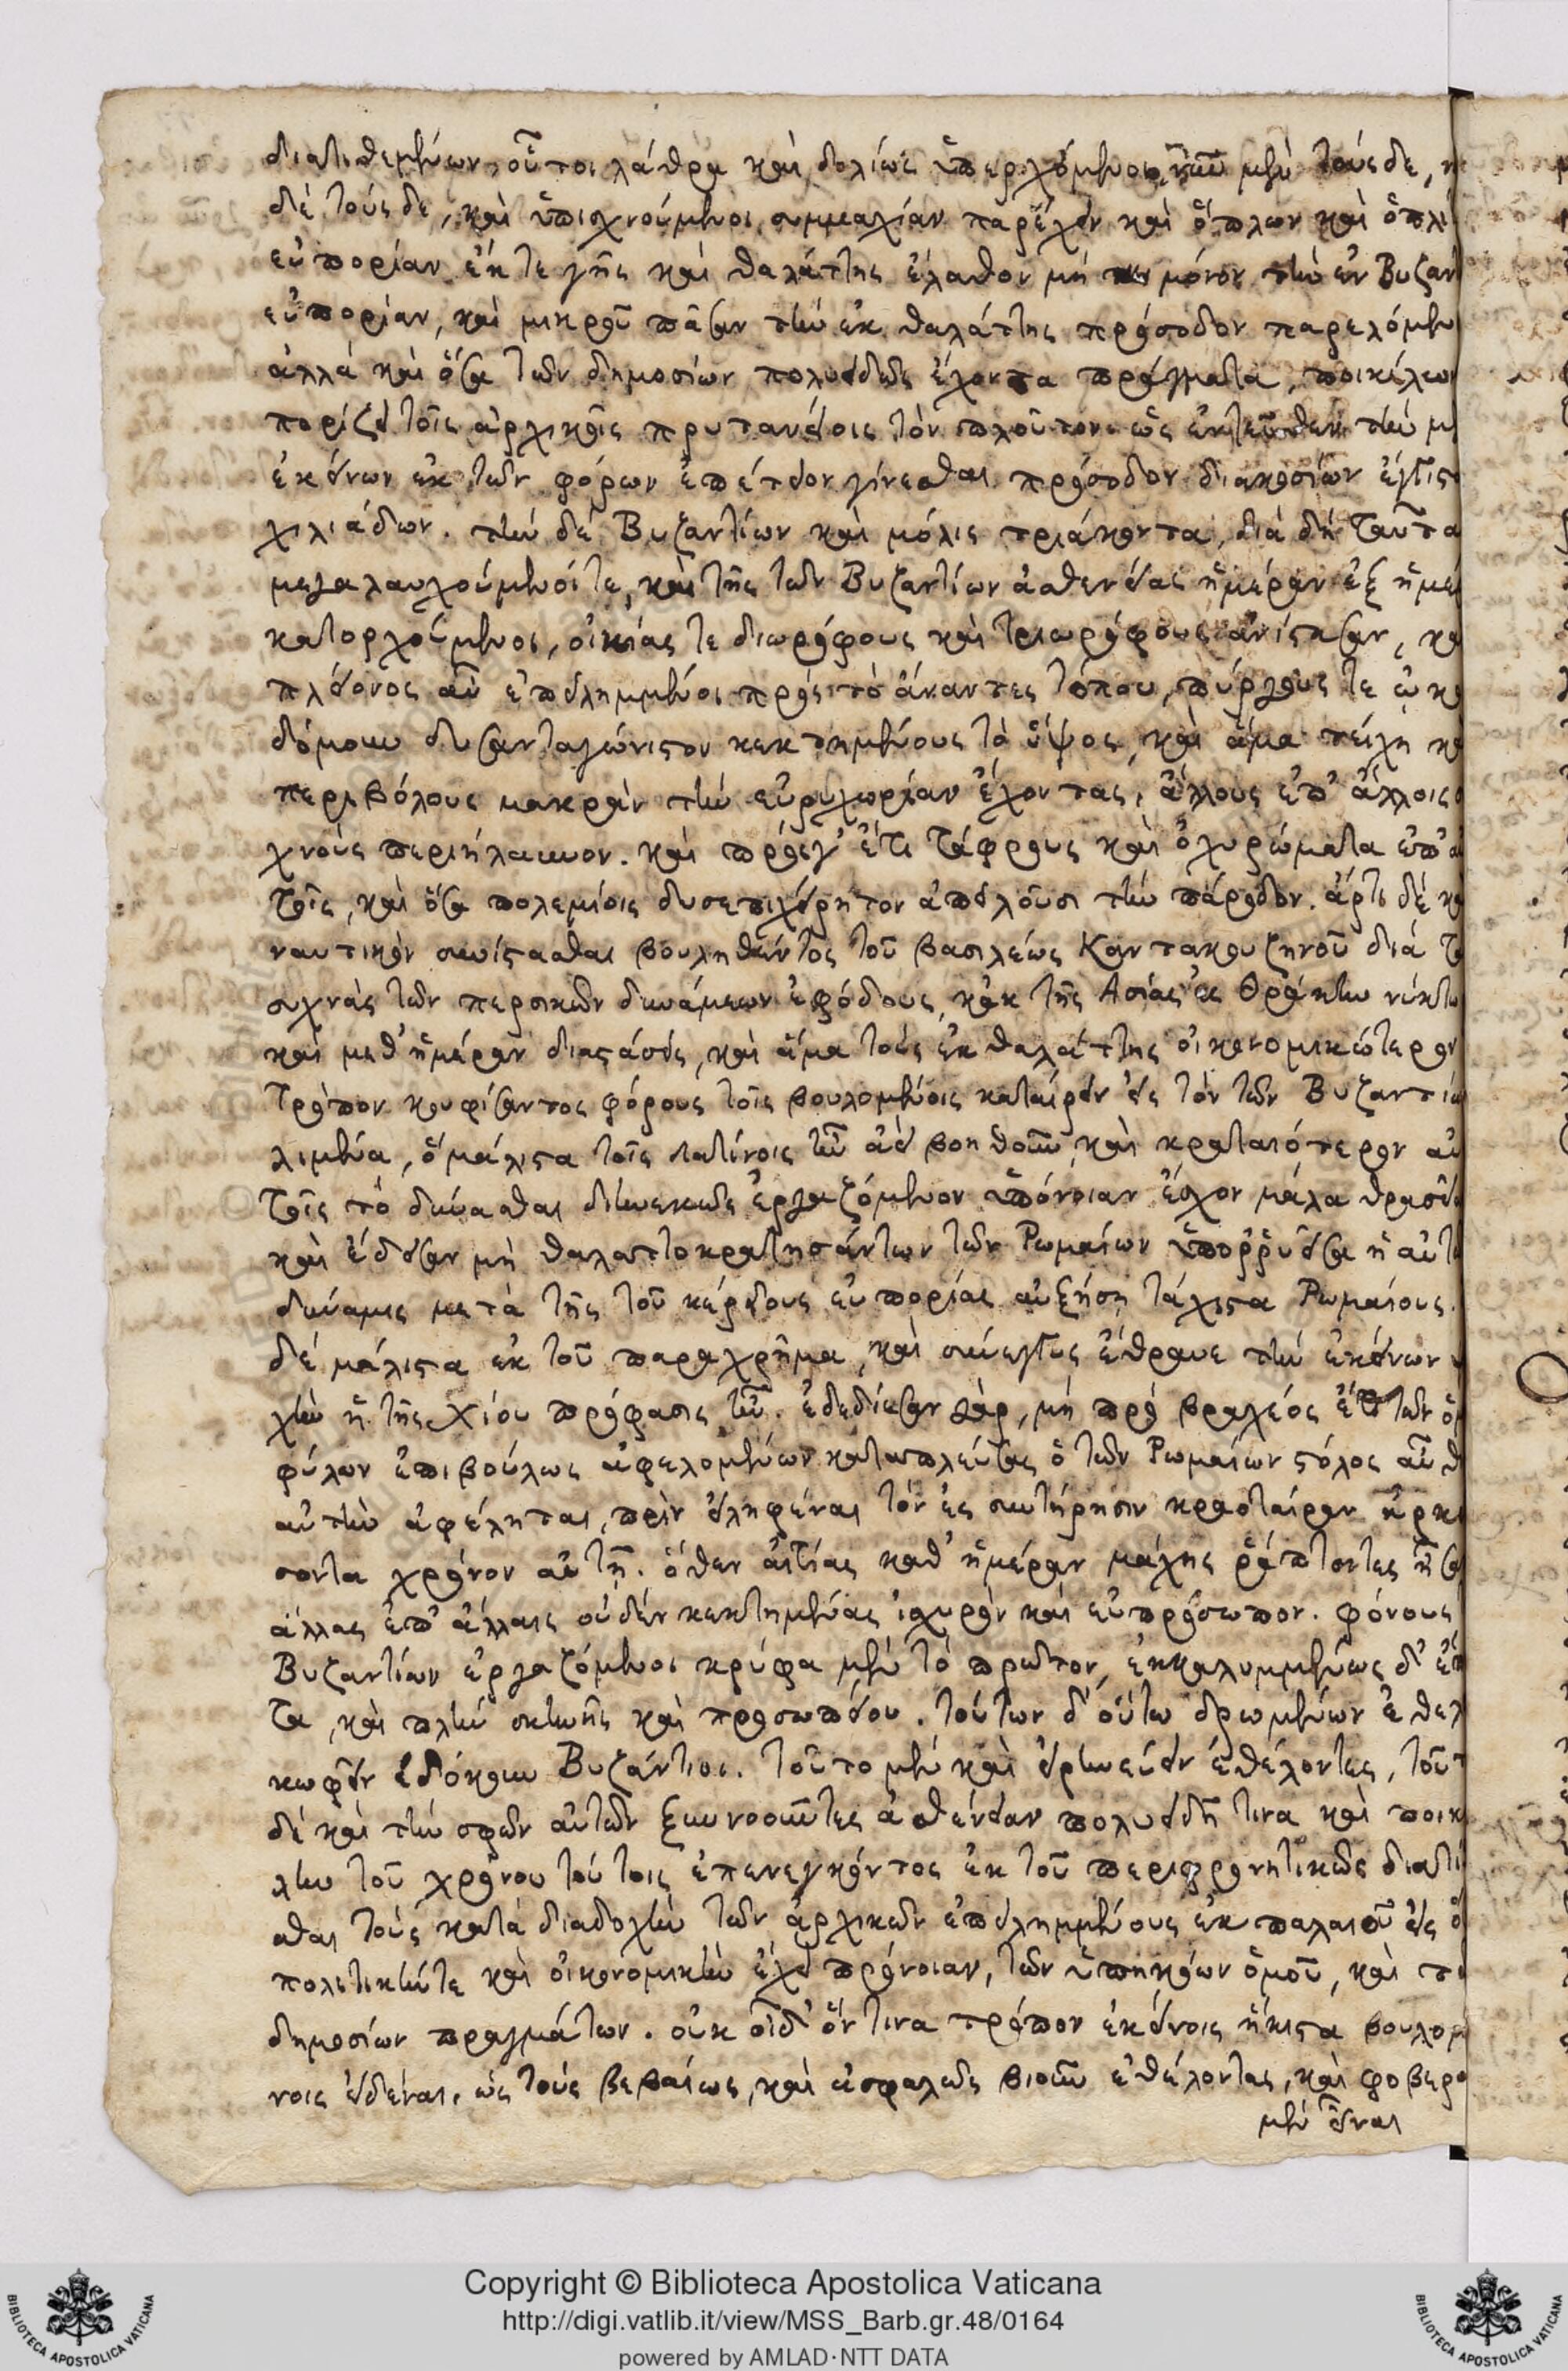 διατιθεμένων, οὗτοι λάθρα καὶ δολίως ὑπερχόμενοι, νῦν μὲν τούσδε,
δὲ τούσδε, καὶ ὑπισχνούμενοι συμμαχίαν παρέχειν καὶ ὅπλων καὶ ὁπλι
εὐπορίαν ἔκ τε γῆς καὶ θαλάττης ἔλαθον μὴ μόνον τὴν ἐν Βυζαν
εὐπορίαν, καὶ μικροῦ πᾶσαν τὴν ἐκ θαλάττης πρόσοδον παρελόμεν
ἀλλὰ καὶ ὅσα τῶν δημοσίων πολυειδῶς ἔχοντα πράγματα, ποικίλων
πορίζει τοῖς ἀρχικοῖς πρυτανείοις τὸν πλοῦτον. ὡς ἐντεῦθεν τὴν μ
ἐκείνων ἐκ τῶν φόρων ἐπέτειον γίνεσθαι πρόσοδον διακοσίων ἔγγιστ
χιλιάδων. τὴν δὲ Βυζαντίων καὶ μόλις τριάκοντα, διὰ δὴ ταῦτα
μεγαλαυχούμενοί τε, καὶ τῆς τῶν Βυζαντίων ἀσθενείας ἡμέραν ἐξ ἡμέ
κατορχούμενοι, οἰκίας τε διωρόφους καὶ τριωρόφους ἀνίστασαν, κα
πλείονος αὖ ἐπειλημμένοι πρὸς τὸ ἄναντες τόπου, πύργους τε ᾠκο
δόμουν δυσανταγώνιστον κεκτημένους τὸ ὕψος, καὶ ἅμα τείχη κα
περιβόλους μακρὰν τὴν εὐρυχωρίαν ἔχοντας, ἄλλους ἐπ' ἄλλοις
χνοὺς περιήλαυνον. καὶ πρός γ' ἔτι τάφρους καὶ ὀχυρώματα ἐπ' αὐ
τοῖς, καὶ ὅσα πολεμίοις δυσεπιχείρητον ἀπειλοῦσι τὴν πάροδον. ἄρτι δὲ κα
ναυτικὸν συνίστασθαι βουληθέντος τοῦ βασιλέως Καντακουζηνοῦ διὰ τὰ
συχνὰς τῶν περσικῶν δυνάμεων ἐφόδους, κἀκ τῆς Ἀσίας ἐς Θράκην νύκτω
καὶ μεθ' ἡμέραν διαβάσεις, καὶ ἅμα τοὺς ἐκ θαλάττης οἰκονομικώτερον
τρόπον κουφίσαντος φόρους τοῖς βουλομένοις καταίρειν ἐς τὸν τῶν Βυζαντίω
λιμένα, ὃ μάλιστα τοῖς λατίνοις ἦν ἀεὶ βοηθοῦν, καὶ κραταιότερον αὐ
τοῖς τὸ δύνασθαι διηνεκῶς ἐργαζόμενον ὑπόνοιαν ἔσχον μάλα θρασεῖα
καὶ ἔδεισαν μὴ θαλαττοκρατησάντων τῶν Ῥωμαίων ὑπορρυεῖσα ἡ αὐτ
δύναμις μετὰ τῆς τοῦ κέρδους εὐπορίας αὐξήσῃ τάχιστα Ῥωμαίους.
δὲ μάλιστα ἐκ τοῦ παραχρῆμα, καὶ σύνεγγυς ἔθραυε τὴν ἐκείνων
χὴν ἡ τῆς Χίου πρόφασις ἦν. ἐδεδίεσαν γὰρ, μὴ πρὸ βραχέος ἔτι τῶν ὁμ
φύλων ἐπιβούλως ἀφελομένων καταπλεύσας ὁ τῶν Ῥωμαίων στόλος αὖθ
αὐτὴν ἀφέληται, πρὶν εἰληφέναι τὸν ἐς συντήρησιν κραταίραν ἀρκέ
σοντα χρόνον αὐτῇ. ὅθεν αἰτίας καθ' ἡμέραν μάχης ῥάπτοντες ἦσα
ἄλλας ἐπ' ἄλλαις οὐδὲν κεκτημένας ἰσχυρὸν καὶ εὐπρόσωπον. φόνους
Βυζαντίων ἐργαζόμενοι κρύφα μὲν τὸ πρῶτον, ἐκκεκαλυμμένως δ' ἔπ
τα, καὶ πλὴν σκηνῆς καὶ προσωπείου. τούτων δ' οὕτω δρωμένων ἐθελ
κωφεῖν ἐδόκουν Βυζάντιοι. τοῦτο μὲν καὶ εἰρηνεύειν ἐθέλοντες, τοῦτ
δὲ καὶ τὴν σφῶν αὐτῶν ξυννοοῦντες ἀσθένειαν πολυειδῆ τινα καὶ ποικ
λην τοῦ χρόνου τούτοις ἐπενεγκόντος ἐκ τοῦ περιφρονητικῶς διατί
θαι τοὺς κατὰ διαδοχὴν τῶν ἀρχικῶν ἐπειλημμένους ἐκ παλαιοῦ ἐς ὅ
πολιτικήν τε καὶ οἰκονομικὴν ἔχει πρόνοιαν, τῶν ὑπηκόων ὁμοῦ, καὶ τῶ
δημοσίων πραγμάτων. οὐκ οἶδ' ὅντινα τρόπον ἐκείνοις ἥκιστα βουλομ
νοις εἰδέναι, ὡς τοὺς βεβαίως, καὶ ἀσφαλῶς βιοῦν ἐθέλοντας, καὶ φοβερο
μὲν εἶναι
Copyright © Biblioteca Apostolica Vaticana
http://digi.vatlib.it/view/MSS_Barb.gr.48/0164
powered by AMLAD·NTT DATA
BIBLIOTECA APOSTOLICA VATICANA
BIBLIOTECA APOSTOLICA VATICANA